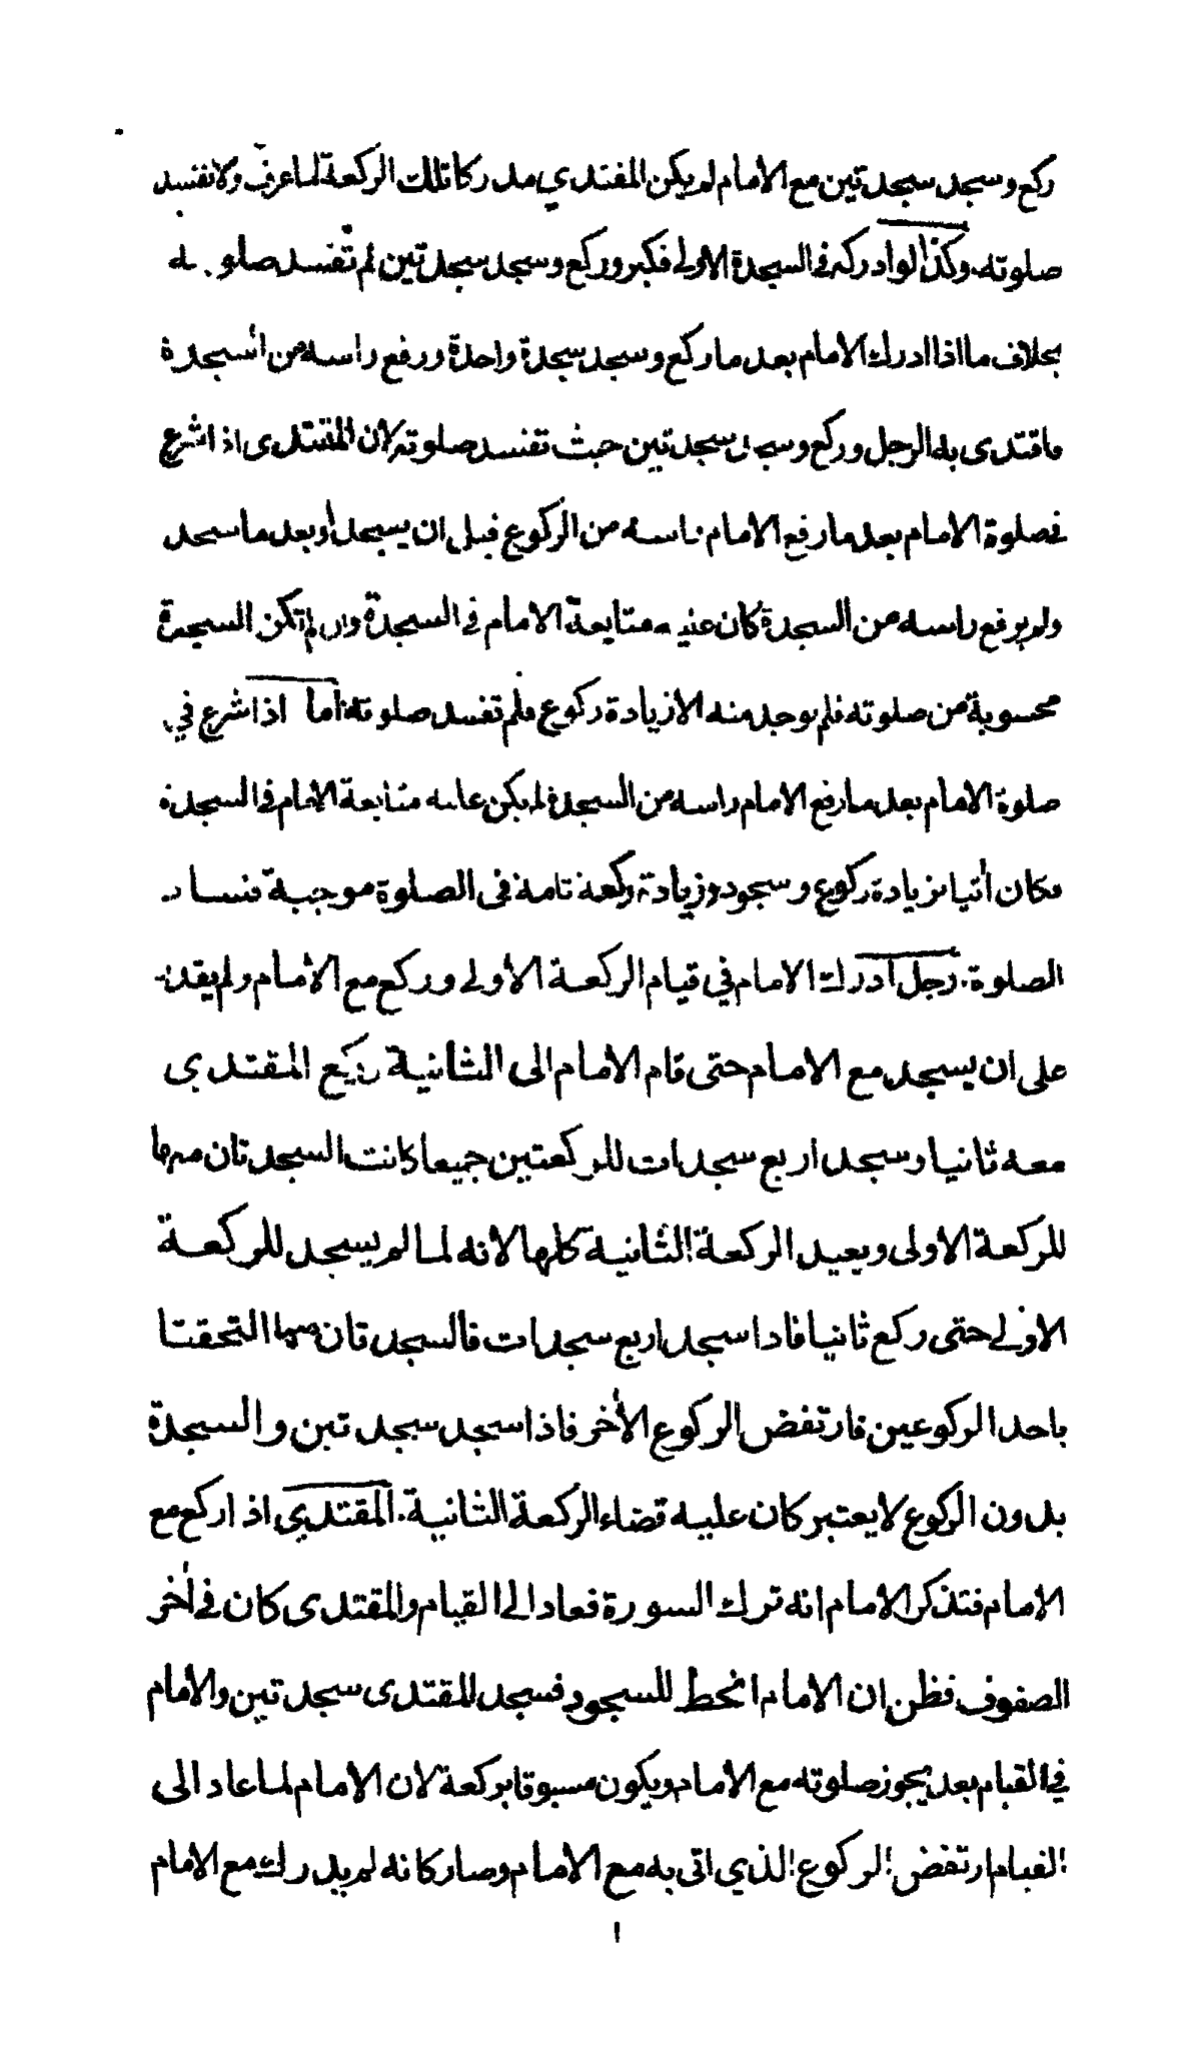 ركع وسجد سجدتين مع الامام لم يكن المقتدي مدركا تلك الركعة لما عرف ولا تفسد
صلوته وكذا لو ادركه في السجدة الاولى فكبر وركع وسجد سجدتين لم تفسد صلو . ـه
بخلاف ما اذا ادرك الامام بعد ما ركع وسجد سجدة واحدة ورفع راسه من السجدة
فاقتدى به الرجل وركع وسجد سجدتين حيث تفسد صلوته لان المقتدى اذا شرع
في صلوة الامام بعد ما رفع الامام راسه من الركوع قبل ان يسجد أو بعد ما سجد
ولم يرفع راسه من السجدة كان عليه متابعة الامام في السجدة وان لم تكن السجدة
محسوبة من صلوته فلم يوجد منه الا زيادة ركوع فلم تفسد صلوته أما اذا شرع في
صلوة الامام بعد ما رفع الامام راسه من السجدة لم يكن عليه متابعة الامام في السجدة
فكان أتيا بزيادة ركوع وسجود وزيادة ركعة تامة فى الصلوة موجبة فساد
الصلوة. رجل أدرك الامام في قيام الركعة الأولى وركع مع الأمام ولم يقدر
على ان يسجد مع الامام حتى قام الأمام الى الثانية ركع المقتدي
معه ثانيا وسجد اربع سجدات للركعتين جميعا كانت السجدتان منها
للركعة الاولى ويعيد الركعة الثانية كلها لانه لما لم يسجد للركعة
الاولى حتى ركع ثانيا فاذا سجد اربع سجدات فالسجدتان منها التحقتا
باحد الركوعين فارتفض الركوع الأخر فاذا سجد سجدتين والسجدة
بدون الركوع لا يعتبر كان عليه قضاء الركعة الثانية. المقتدي اذا ركع مع
الامام فتذكر الامام انه ترك السورة فعاد الى القيام والمقتدى كان في أخر
الصفوف فظن ان الامام انحط للسجود فسجد المقتدى سجدتين والامام
في القيام بعد يجوز صلوته مع الامام ويكون مسبوقا بركعة لان الامام لما عاد الى
القيام ارتفض الركوع الذي اتى به مع الامام وصار كانه لم يدرك مع الامام
ا